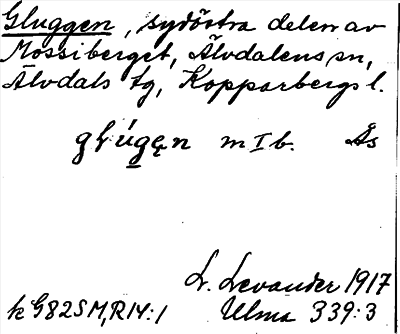 Gluggen, sydöstra delen av
Mossiberget, Älvdalens sn,
Älvdals tg, Kopparbergs l.
glúgęn m I b. Ås
L. Levander 1917
k G82SM,R14:1 Ulma 339:3